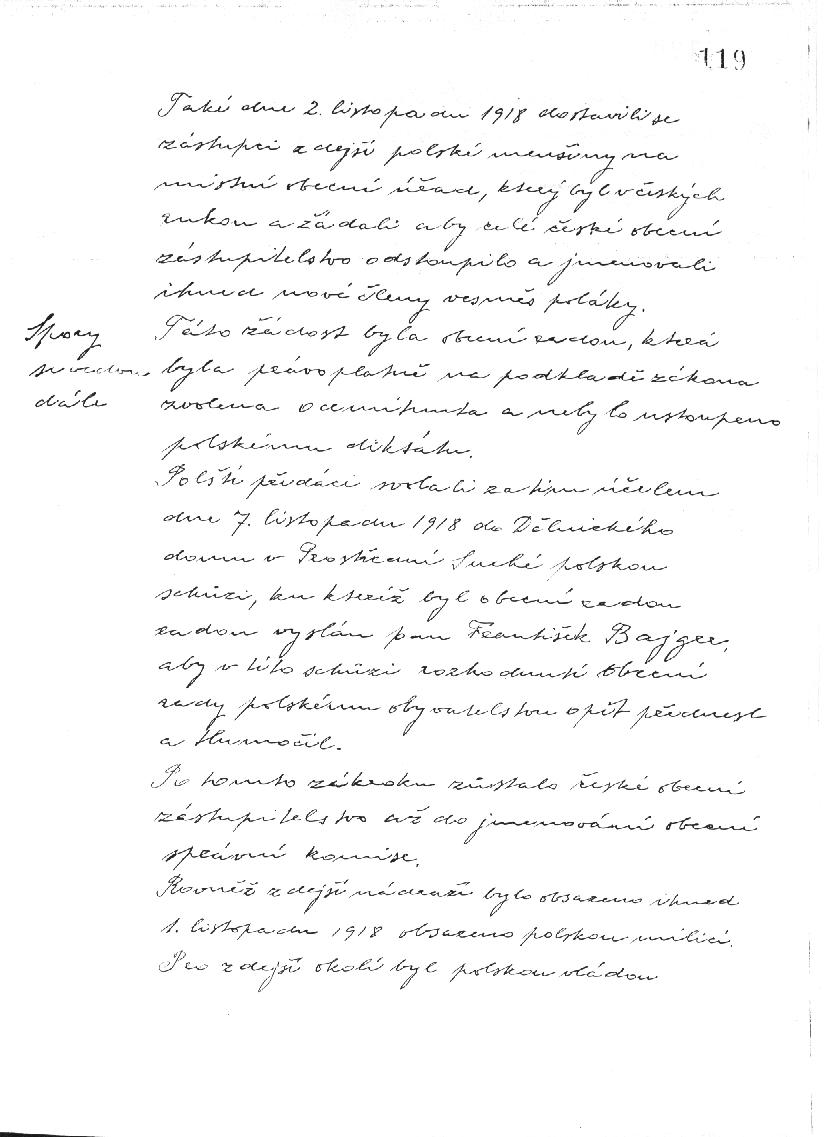 119
Také dne 2. listopadu 1918 dostavili se
zástupci zdejší polské menšiny na
místní obecní úřad, který byl v českých
rukou a žádali aby celé české obecní
zástupitelstvo odstoupilo a jmenovali
ihned nové členy vesměs poláky.
Spory
dále
Táto žádost byla obecní radou, která
byla právoplatně na podkladě zákona
zvolena odmítnuta a nebylo ustoupeno
polskému diktátu.
Polští předáci svolali za tím účelem
dne 7. listopadu 1918 do Dělnického
domu v Prostřední Suché polskou
schůzi, ku kteréž byl obecní radou
radou vyslán pan František Bajger,
aby v této schůzi rozhodnutí obecní
rady polskému obyvatelstvu opět přednesl
a tlumočil.
Po tomto zákroku zůstalo české obecní
zástupitelstvo až do jmenování obecní
správní komise.
Rovněž zdejší nádraží bylo obsazeno ihned
1. listopadu 1918 obsazeno polskou milicí.
Pro zdejší okolí byl polskou vládou